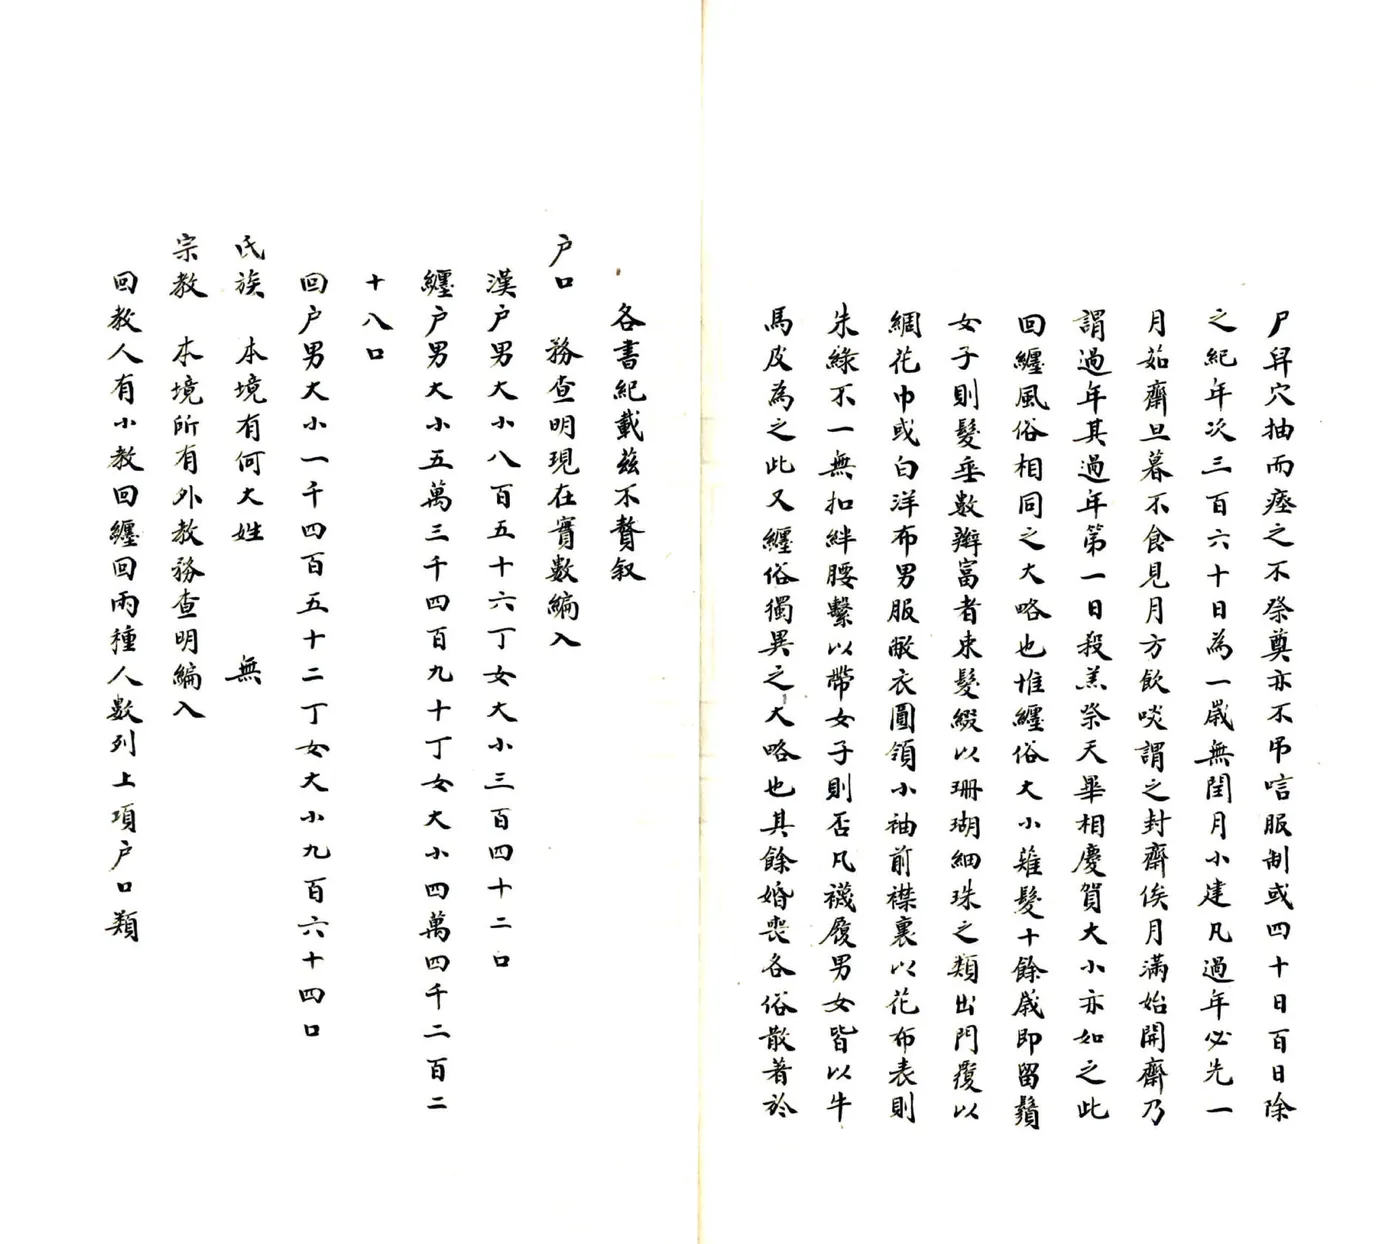 尸舁穴抽而瘞之不祭奠亦不吊唁服制或四十日百日除
之紀年次三百六十日為一歲無閏月小建凡過年必先一
月茹齋旦暮不食見月方飲啖謂之封齋俟月滿始開齋乃
謂過年其過年第一日殺羔祭天畢相慶賀大小亦如之此
回纏風俗相同之大略也惟纏俗大小薙髮十餘歲即留鬚
女子則髮垂數辮富者束髮綴以珊瑚細珠之類出門覆以
綢花巾或白洋布男服敞衣圓領小袖前襟裏以花布表則
朱綠不一無扣絆腰繫以帶女子則否凡襪履男女皆以牛
馬皮為之此又纏俗獨異之大略也其餘婚喪各俗散著於
各書紀載茲不贅叙
户口　務查明現在實數編入
漢户男大小八百五十六丁女大小三百四十二口
纏户男大小五萬三千四百九十丁女大小四萬四千二百二
十八口
回户男大小一千四百五十二丁女大小九百六十四口
氏族　本境有何大姓　　　無
宗教　本境所有外教務查明編入
回教人有小教回纏回兩種人數列上項户口類